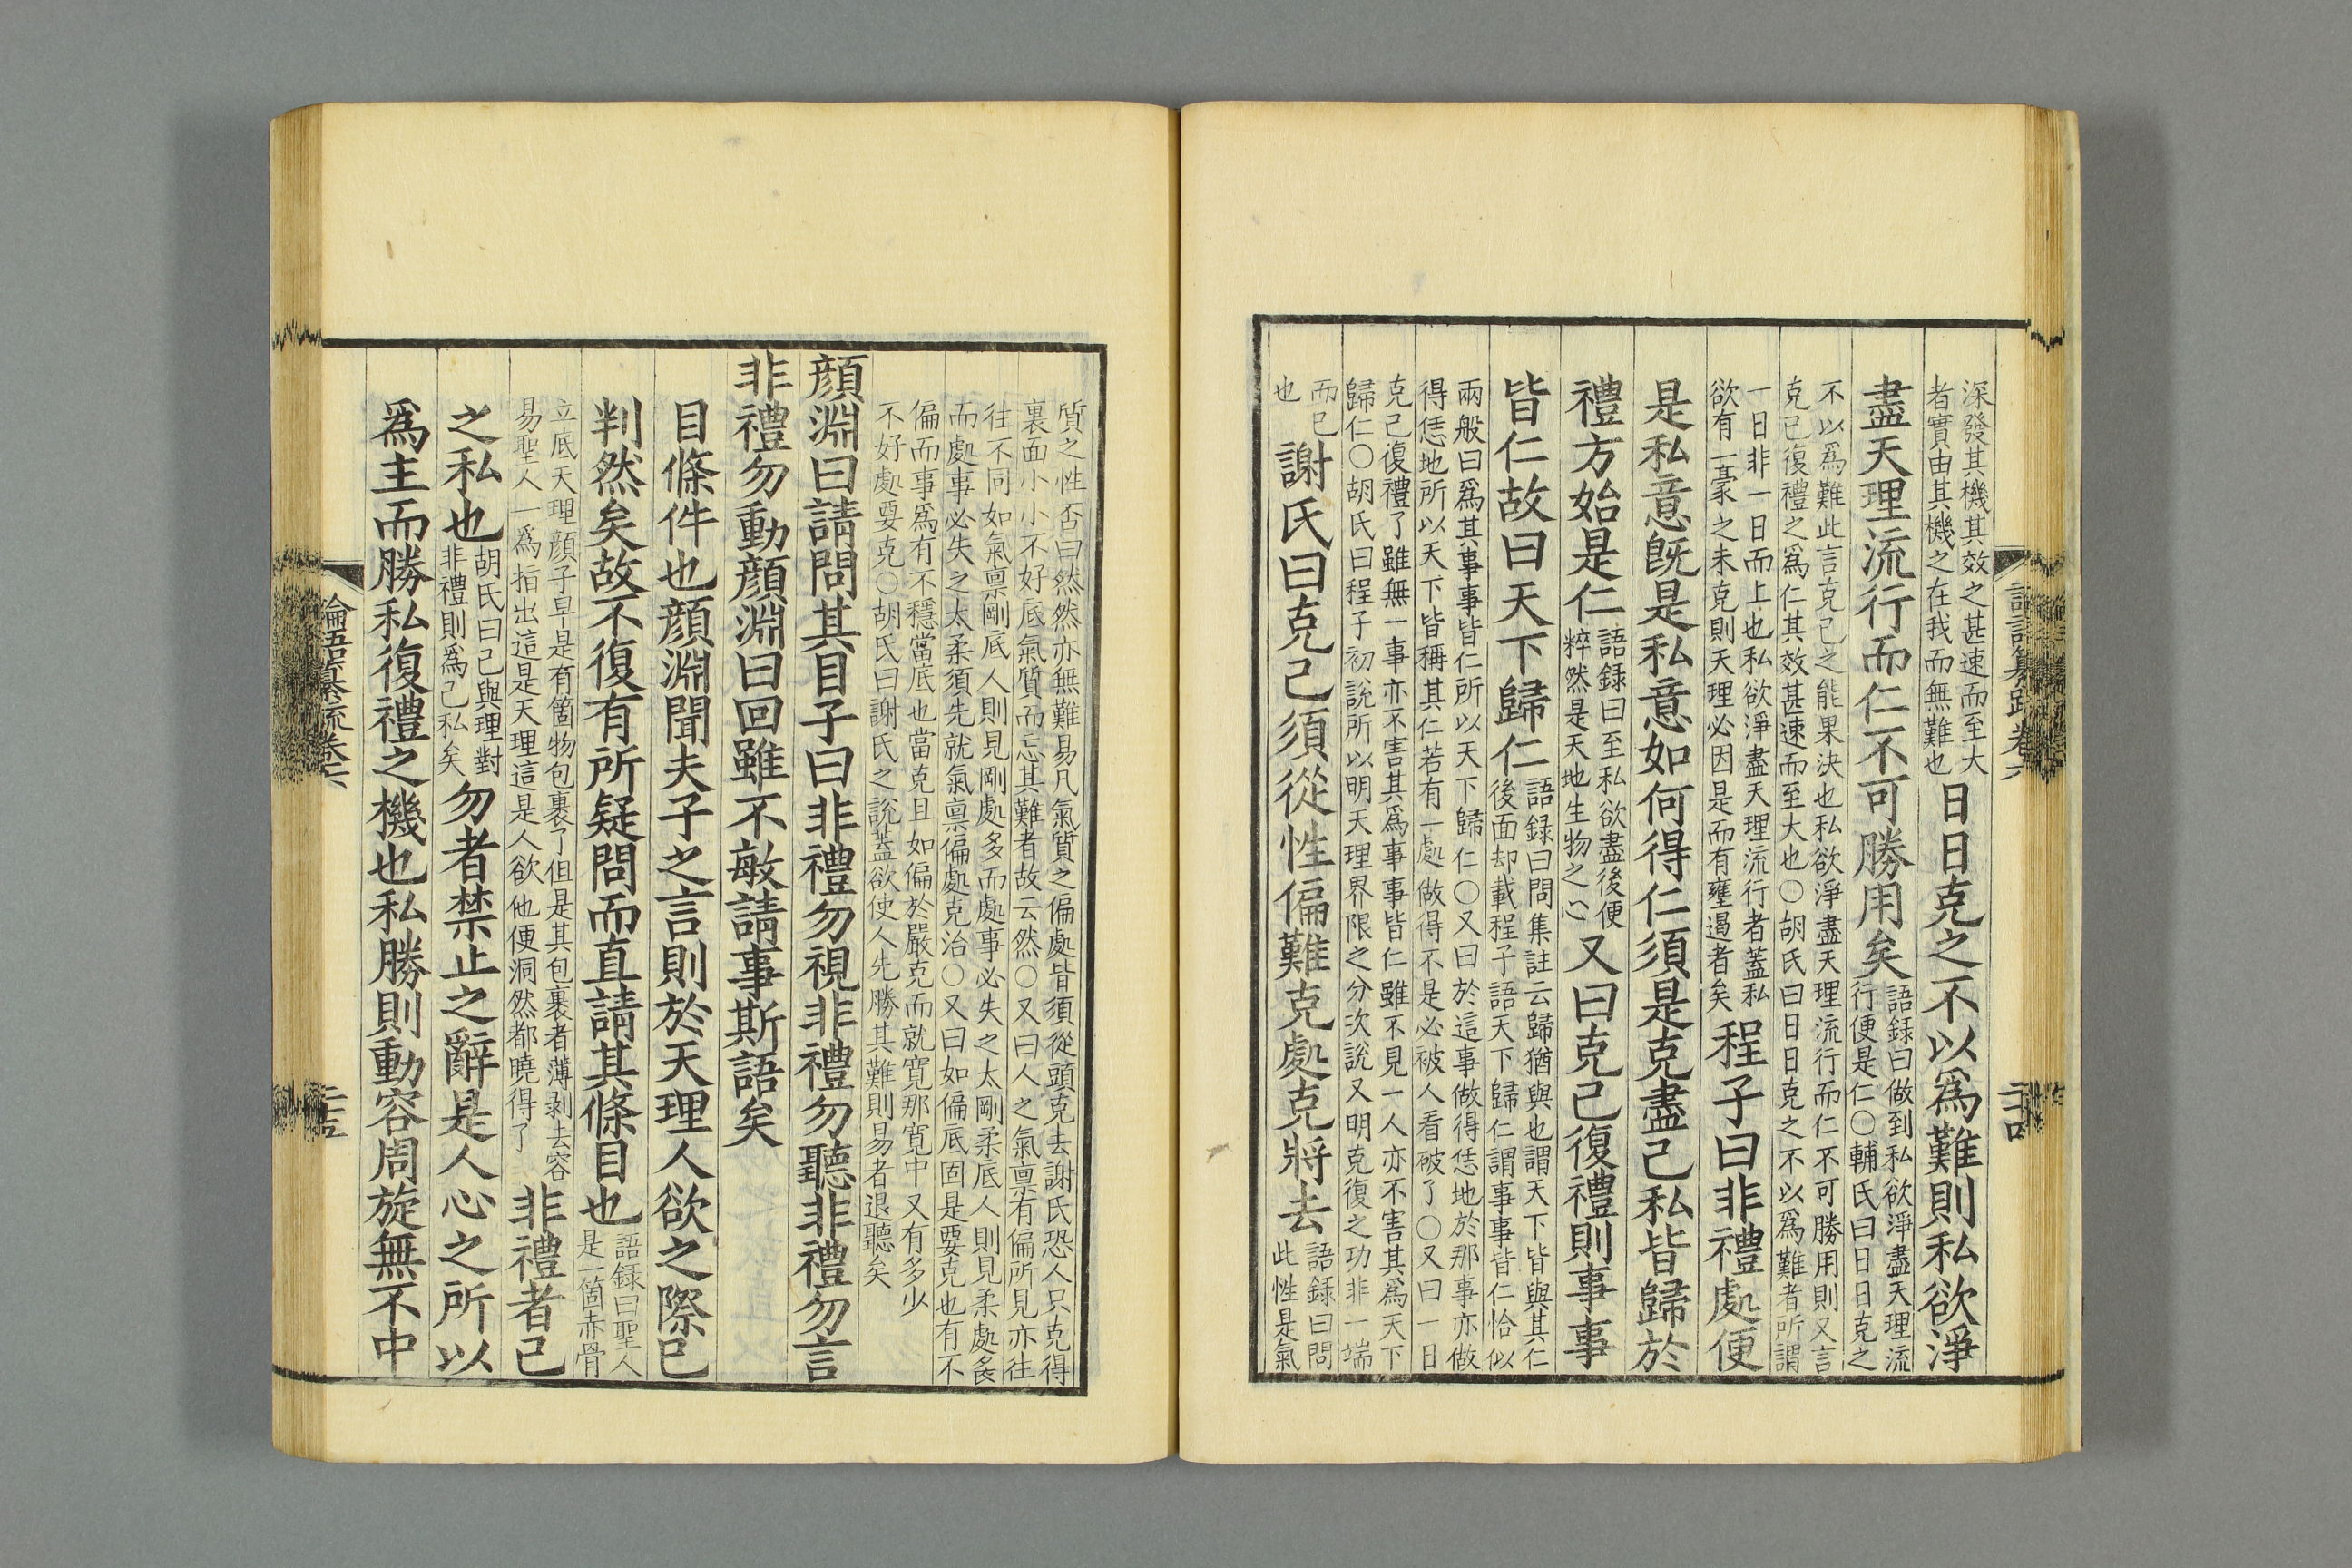 深發其機其效之甚速而至大
者實由其機之在我而無難也
日日克之不以爲難則私欲淨
盡天理流行而仁不可勝用矣
語録曰做到私欲淨盡天理流
行便是仁○輔氏曰日日克之
不以爲難此言克己之能果決也私欲淨盡天理流行而仁不可勝用則又言
克己復禮之爲仁其效甚速而至大也○胡氏曰日日克之不以爲難者所謂
一日非一日而上也私欲淨盡天理流行者蓋私
欲有一豪之未克則天理必因是而有壅遏者矣
程子曰非禮處便
是私意旣是私意如何得仁須是克盡己私皆歸於
禮方始是仁
語録曰至私欲盡後便
粹然是天地生物之心
又曰克己復禮則事事
皆仁故曰天下歸仁
語録曰問集註云歸猶與也謂天下皆與其仁
後面却載程子語天下歸仁謂事事皆仁恰似
兩般曰爲其事事皆仁所以天下歸仁○又曰於這事做得恁地於那事亦做
得恁地所以天下皆稱其仁若有一處做得不是必被人看破了○又曰一日
克己復禮了雖無一事亦不害其爲事事皆仁雖不見一人亦不害其爲天下
歸仁○胡氏曰程子初說所以明天理界限之分次說又明克復之功非一端
而已
也
謝氏曰克己須從性偏難克處克將去
語録曰問
此性是氣
質之性否曰然然亦無難易凡氣質之偏處皆須從頭克去謝氏恐人只克得
裏面小小不好底氣質而忘其難者故云然○又曰人之氣禀有偏所見亦往
往不同如氣禀剛底人則見剛處多而處事必失之太剛柔底人則見柔處多
而處事必失之太柔須先就氣禀偏處克治○又曰如偏底固是要克也有不
偏而事爲有不穩當底也當克且如偏於嚴克而就寛那寛中又有多少
不好處要克○胡氏曰謝氏之說蓋欲使人先勝其難則易者退聽矣
顏淵曰請問其目子曰非禮勿視非禮勿聽非禮勿言
非禮勿動顏淵曰回雖不敏請事斯語矣
目條件也顏淵聞夫子之言則於天理人欲之際已
判然矣故不復有所疑問而直請其條目也
語録曰聖人
是一箇赤骨
立底天理顏子早是有箇物包裹了但是其包裹者薄剥去容
易聖人一爲指出這是天理這是人欲他便洞然都曉得了
非禮者己
之私也
胡氏曰己與理對
非禮則爲己私矣
勿者禁止之辭是人心之所以
爲主而勝私復禮之機也私勝則動容周旋無不中